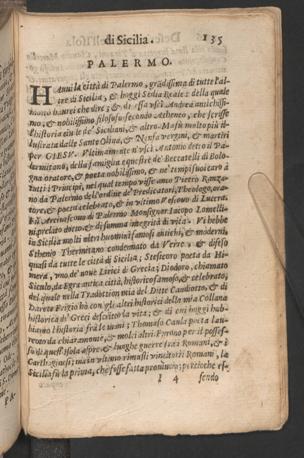 di Sicilia.
135
PALERMO.
HAuui la città di Palermo, grādissima di tutte l'al-
tre di Sicilia, & hoggi Sedia Reale: della quale
huomo, & nobilissimo filosofo secondo Atheneo, che scrisse
l'historia
& altro. Ma fù molto più il-
lustrata dalle Sante Oliua, & Ninfa vergini, & martiri
per GIESV. Vltimamente n'uscì Antonio detto il Pa-
lermitano, della famiglia equestre de' Beccatelli di Bolo-
gna oratore, & poeta nobilissimo, & ne' tempi suoi caro à
tutti i Principi, nel qual tempo visse anco Pietro Ranza-
no da Palermo dell'ordine de' Predicatori, Theologo, ora-
tore, & poeta celebrato, & in vltimo Vescouo di Lucera-
Arciuescouo di Palermo Monsignor Iacopo Lomelli-
ni prelato dotto, & di somma integrità di vita. Vi hebbe
in Sicilia molti altri huomini famosi antichi, & moderni,
Sthenio Thermitano condennato da Verre, & difeso
quasi da tutte le città di Sicilia; Stesicoro poeta da Hi-
mera, vno de' noue Lirici di Grecia; Diodoro, chiamato
Siculo, da Egra antica città, historico famoso, & celebrato,
del quale nella Tradition vita del Ditte Candiotto, & di
Darete Frigio hò con gli altri historici della mia Collana
historica de' Greci descritto la vita; & di cui hoggi hab-
biamo l'historia frà le mani; Thomaso Caula poeta lau-
reato da Chiaramonte, & molti altri.
per il posses-
so di quest'Isola aspre, & lunghe guerre frà i Romani, & i
Carthaginesi; ma in vltimo rimasti vincitori i Romani, la
Sicilia fù la prima, che fosse fatta prouincia; percioche es-
4
sendo